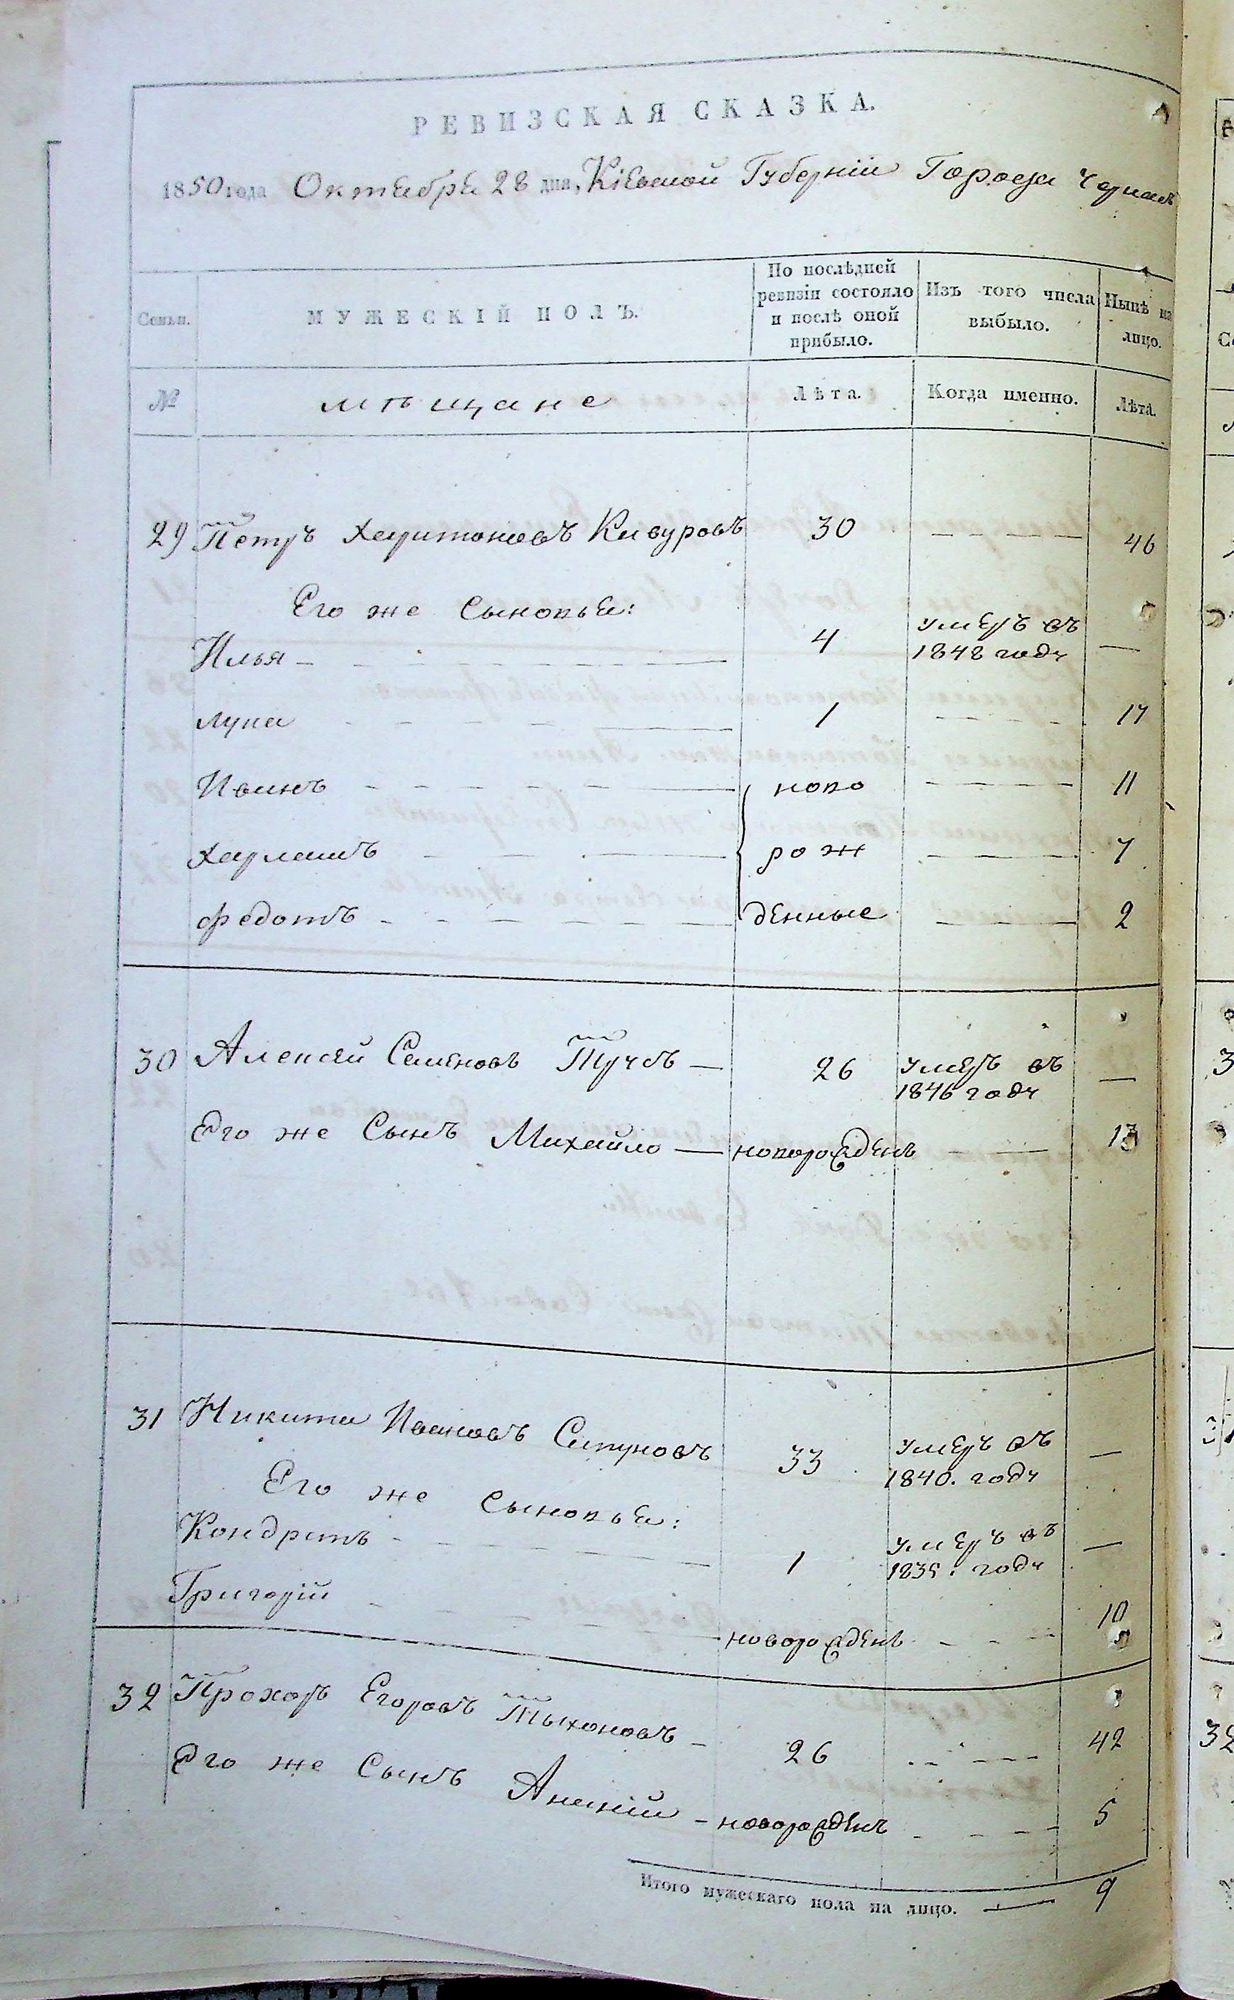 РЕВИЗСКАЯ СКАЗКА.
1850 года Октября 28 дня, Кіевской Губерніи Города
Семьи.
МУЖЕСКІЙ ПОЛЪ.
По послѣдней
ревизіи состояло
и послѣ оной
прибыло.
Изъ того числа
выбыло.
Нынѣ на
лицо.
№
мѣщане
Лѣта.
Когда именно.
Лѣта.
29 Петръ Харитоновъ 30 46
Его же Сыновья:
Илья 4 умеръ въ
1848 году —
Лука 1 17
Иванъ ново 11
Харлампъ рож 7
Федотъ денные 2
30 Алексей Семеновъ 26 умеръ въ
1846 году —
Его же Сынъ Михайло — новорожденъ 13
31 Никита Ивановъ 33 умеръ въ
1840. году —
Его же Сыновья:
Кондратъ 1 умеръ въ
1835. году —
Григорій новорожденъ 10
32 Прохоръ Егоровъ Тыхоновъ 26 42
Его же Сынъ Ананій — новорожденъ 5
Итого мужескаго пола на лицо. — 9